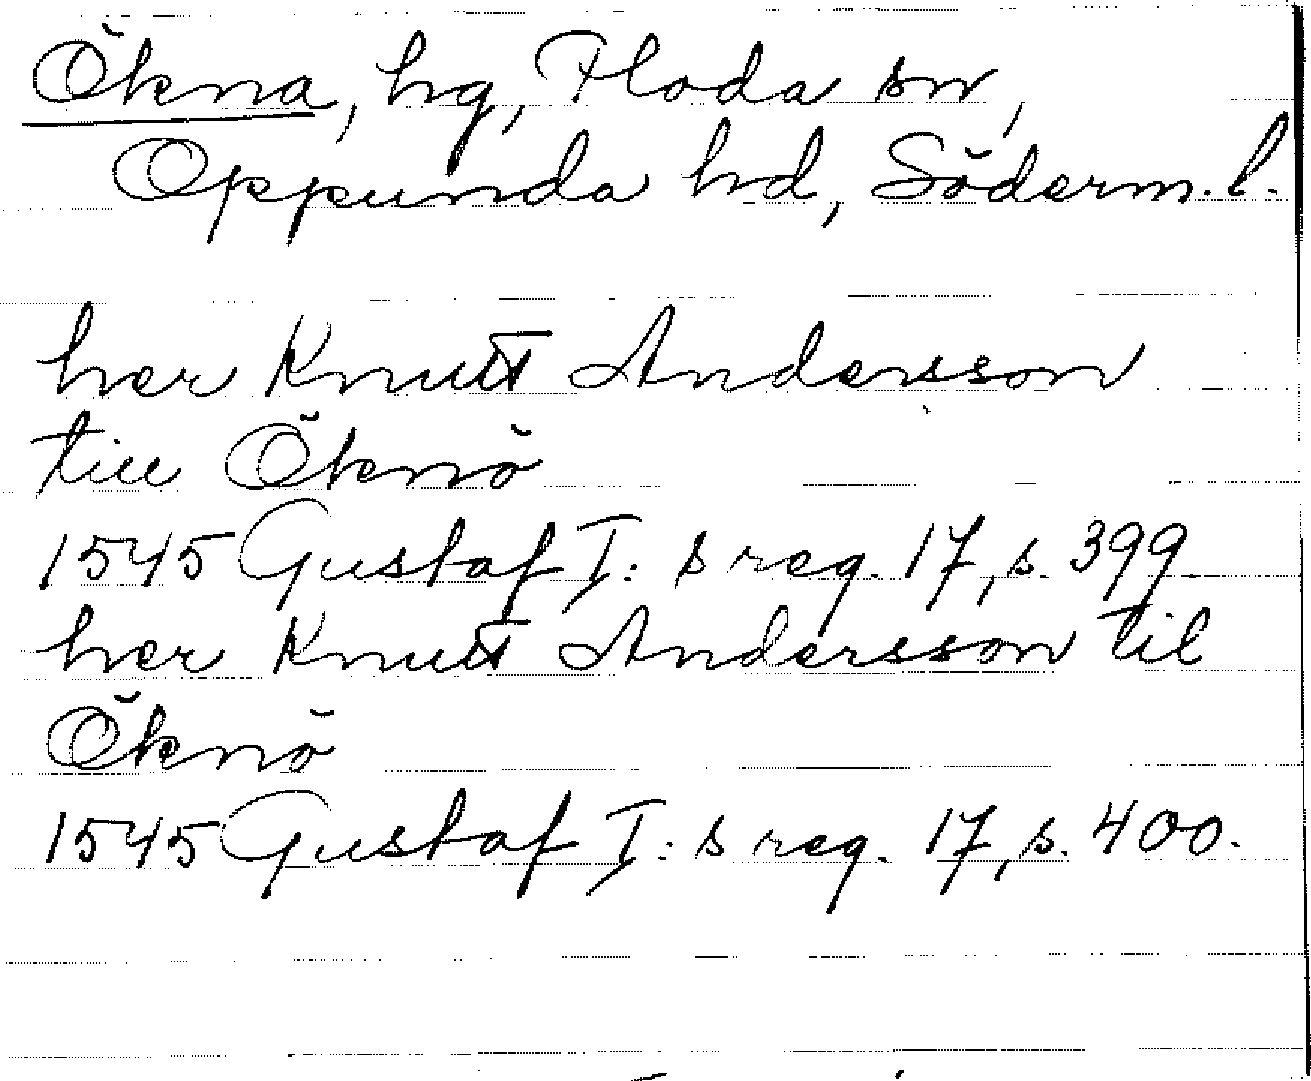 Ökna, hg, Floda sn,
Oppunda hd, Söderm. l.
her Knutt Andersson
till Öknö
1545 Gustaf I: s reg. 17, s. 399
her Knutt Andersson til
Öknö
1545 Gustaf I: s reg. 17, s. 400.